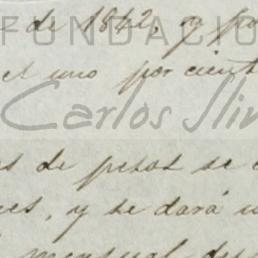 FUNDACIÓ
de 1842, y po
el uno por cient
Carlos Slim
s de pesos se c
es, y se dará u
mensual de